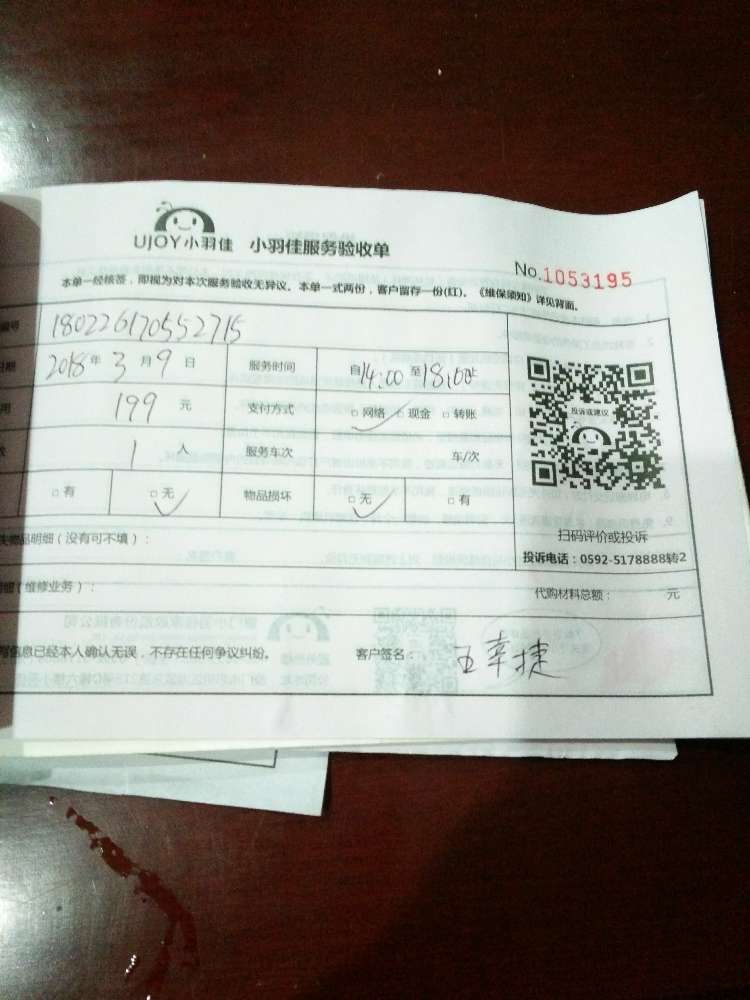 UJOY小羽佳 小羽佳服务验收单
No.1053195
本单一经核签，即视为对本次服务验收无异议。本单一式两份，客户留存一份(红)。《维保须知》详见背面。
编号 180226170552715
日期 2018年3月9日 服务时间 自14:00至18:00止
用 199元 支付方式 □网络 □现金 □转账
投诉或建议
次 1人 服务车次 车/次
□有 □无 物品损坏 □无 □有
扫码评价或投诉
失物品明细（没有可不填）：
投诉电话：0592-5178888转2
细（维修业务）： 代购材料总额： 元
写信息已经本人确认无误，不存在任何争议纠纷。 客户签名： 王幸捷